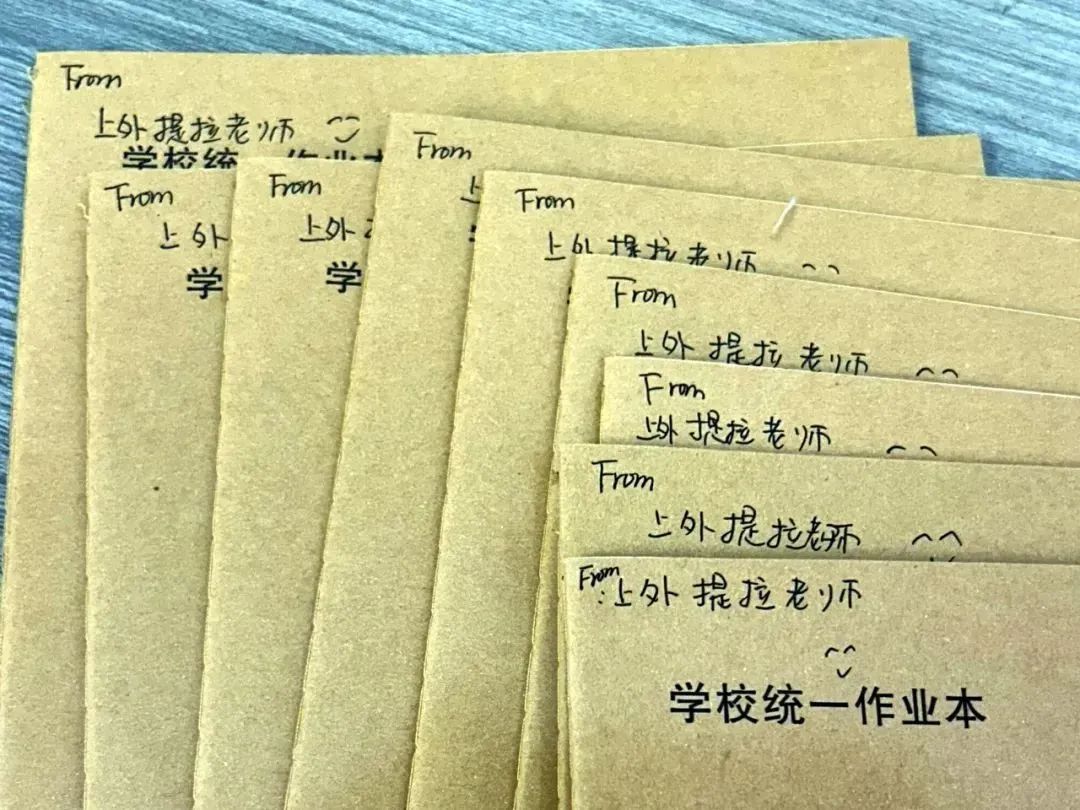 From
上外提拉老师
学校统一作业本
From
上外
学
From
上外
学
From
上
From
上外提拉老师
From
上外提拉老师
From
上外提拉老师
From
上外提拉老师
From
:上外提拉老师
学校统一作业本